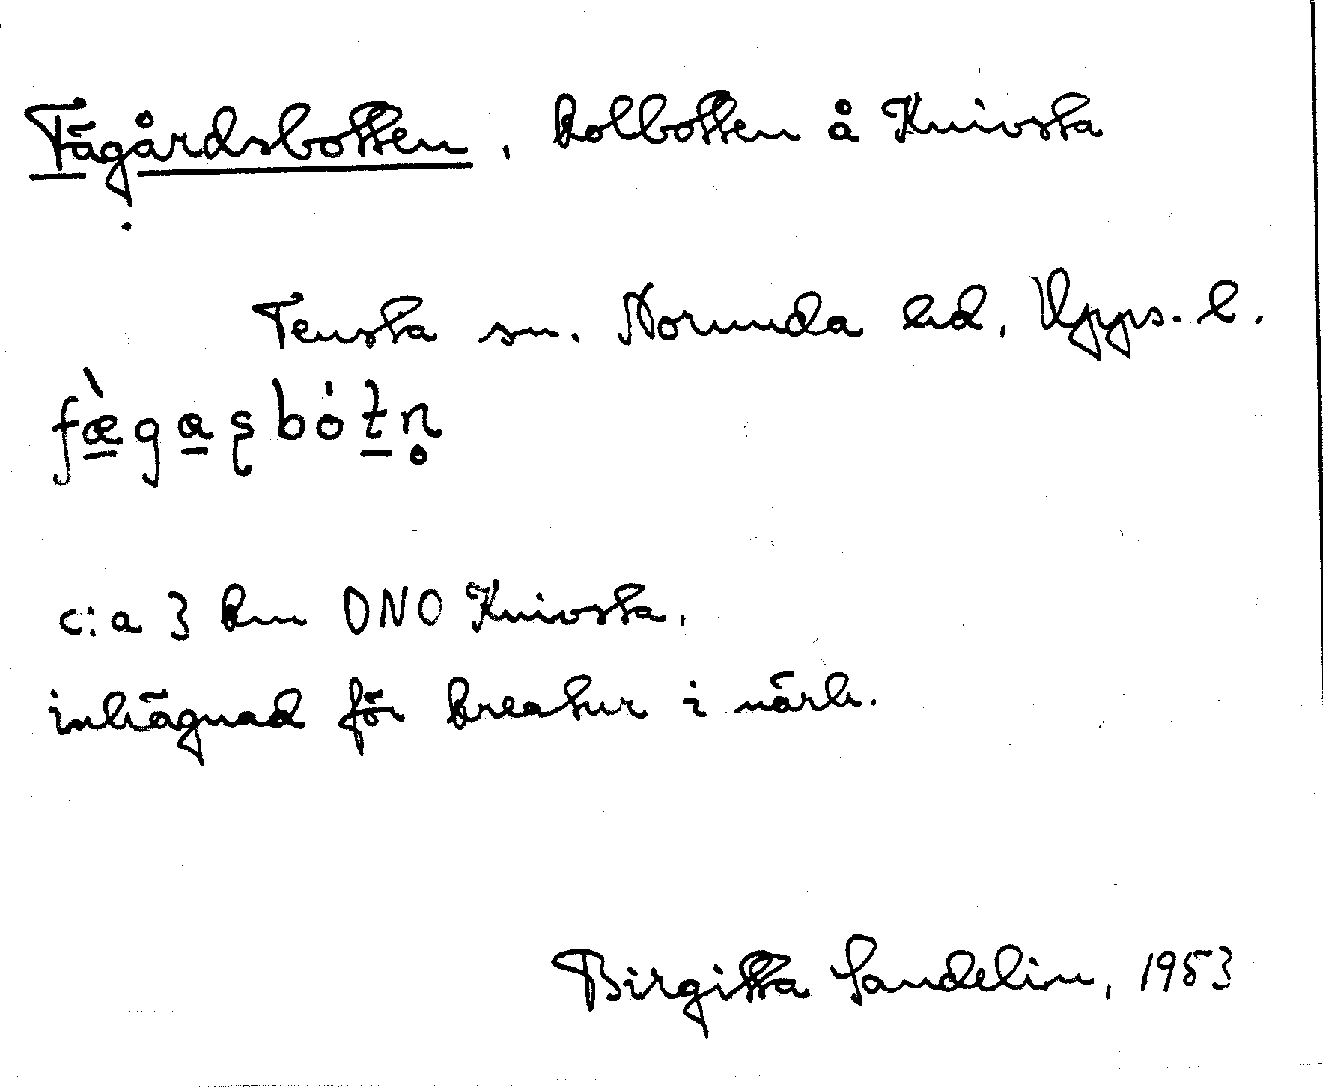 Fägårdsbotten, kolbotten å Knivsta
Tensta sn. Norunda hd, Upps. l.
fæ̀gaʂbótn̥
c:a 3 km ONO Knivsta,
inhägnad för kreatur i närh.
Birgitta Sandelin, 1953